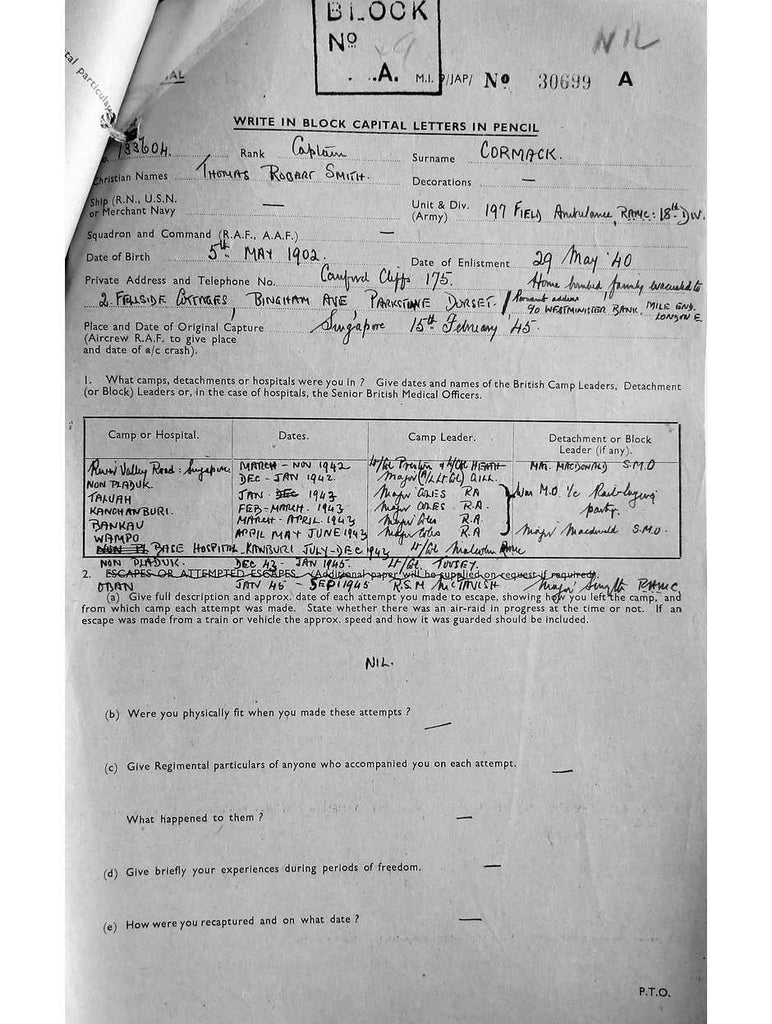 tal particular
BLOCK
Nº 49
. .A.
NIL
M.I. 9/JAP/ Nº 30699 A
WRITE IN BLOCK CAPITAL LETTERS IN PENCIL
133604. Rank Captain Surname CORMACK.
Christian Names THOMAS ROBART SMITH. Decorations —
Ship (R.N., U.S.N. or Merchant Navy —
Unit & Div. (Army) 197 FIELD Ambulance, RAMC: 18th DIV.
Squadron and Command (R.A.F., A.A.F.) —
Date of Birth 5th MAY 1902. Date of Enlistment 29 May '40
Private Address and Telephone No. Canford Cliffs 175. Home bombed family evacuated to
2 FELLSIDE COTTAGES, BINGHAM AVE, PARKSTONE DORSET. / Permanent address
90 WESTMINISTER BANK, MILE END. LONDON E.
Place and Date of Original Capture Singapore 15th February '45.
(Aircrew R.A.F. to give place
and date of a/c crash).
1. What camps, detachments or hospitals were you in ? Give dates and names of the British Camp Leaders, Detachment
(or Block) Leaders or, in the case of hospitals, the Senior British Medical Officers.
Camp or Hospital. Dates. Camp Leader. Detachment or Block
Leader (if any).
River Valley Road: Singapore MARCH - NOV 1942 Lt/Col & Lt/Col HEATH MAJ. MACDONALD S.M.O
NON PLADUK. DEC - JAN 1942. Major (A/Lt Col) GILL.
TALUAH JAN - DEC 1943 Major COLES RA Was M.O. i/c Rail-laying
KANCHANBURI. FEB - MARCH. 1943 Major COLES R.A. party.
BANKAU MARCH - APRIL. 1943 Major Coles R.A
WAMPO APRIL MAY JUNE 1943 Major Coles R.A Major Macdonald S.M.O.
NON PL BASE HOSPITAL - KANBURI JULY - DEC 1943 Lt/Col Malcolm
NON PLADUK. DEC 43 - JAN 1945. Lt/Col TOOSEY.
2. ESCAPES OR ATTEMPTED ESCAPES. (Additional paper will be supplied on request if required).
UBAN JAN 45 - SEPT 1945 R.S.M McTAVISH Major Smyth RAMC
(a) Give full description and approx. date of each attempt you made to escape, showing how you left the camp, and
from which camp each attempt was made. State whether there was an air-raid in progress at the time or not. If an
escape was made from a train or vehicle the approx. speed and how it was guarded should be included.
NIL.
(b) Were you physically fit when you made these attempts ? —
(c) Give Regimental particulars of anyone who accompanied you on each attempt. —
What happened to them ? —
(d) Give briefly your experiences during periods of freedom. —
(e) How were you recaptured and on what date ? —
P.T.O.